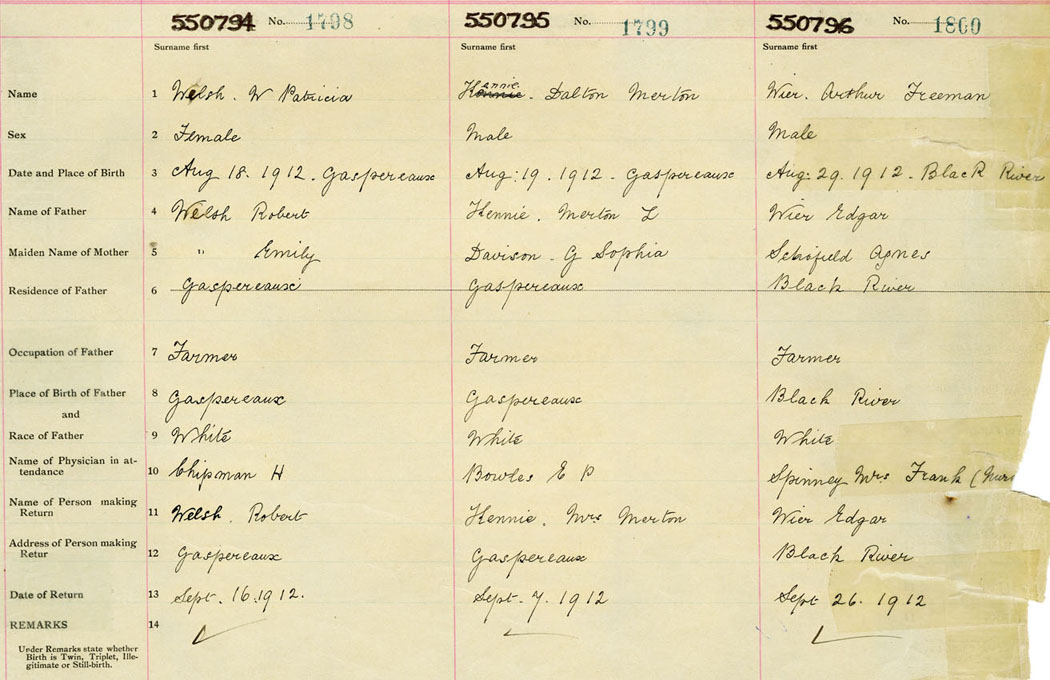 550794 No. 1798 550795 No. 1799 550796 No. 1800
Surname first Surname first Surname first
Name 1 Welsh. W Patricia Hennie. Dalton Merton Wier. Arthur Freeman
Sex 2 Female Male Male
Date and Place of Birth 3 Aug 18. 1912. Gaspereaux Aug: 19. 1912. Gaspereaux Aug: 29. 1912. Black River
Name of Father 4 Welsh Robert Hennie. Merton L Wier Edgar
Maiden Name of Mother 5 " Emily Davison. G Sophia Schofield Agnes
Residence of Father 6 Gaspereaux Gaspereaux Black River
Occupation of Father 7 Farmer Farmer Farmer
Place of Birth of Father 8 Gaspereaux Gaspereaux Black River
and
Race of Father 9 White White White
Name of Physician in at-
tendance 10 Chipman H Bowles E P Spinney Mrs Frank (Nurs
Name of Person making
Return 11 Welsh. Robert Hennie. Mrs Merton Wier Edgar
Address of Person making
Retur 12 Gaspereaux Gaspereaux Black River
Date of Return 13 Sept. 16. 1912. Sept. 7. 1912 Sept 26. 1912
REMARKS 14
Under Remarks state whether
Birth is Twin, Triplet, Ille-
gitimate or Still-birth.